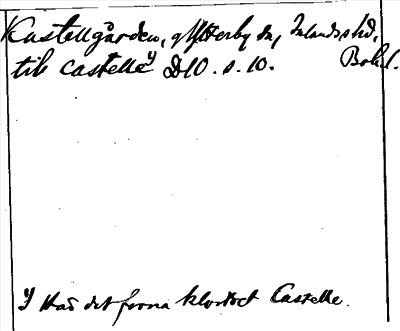 Kastellgården, Ytterby sn, Inlands hd,
till Castelle 1) DlO. s. 10. Bohl.
1) Har det forna klostret Castelle.